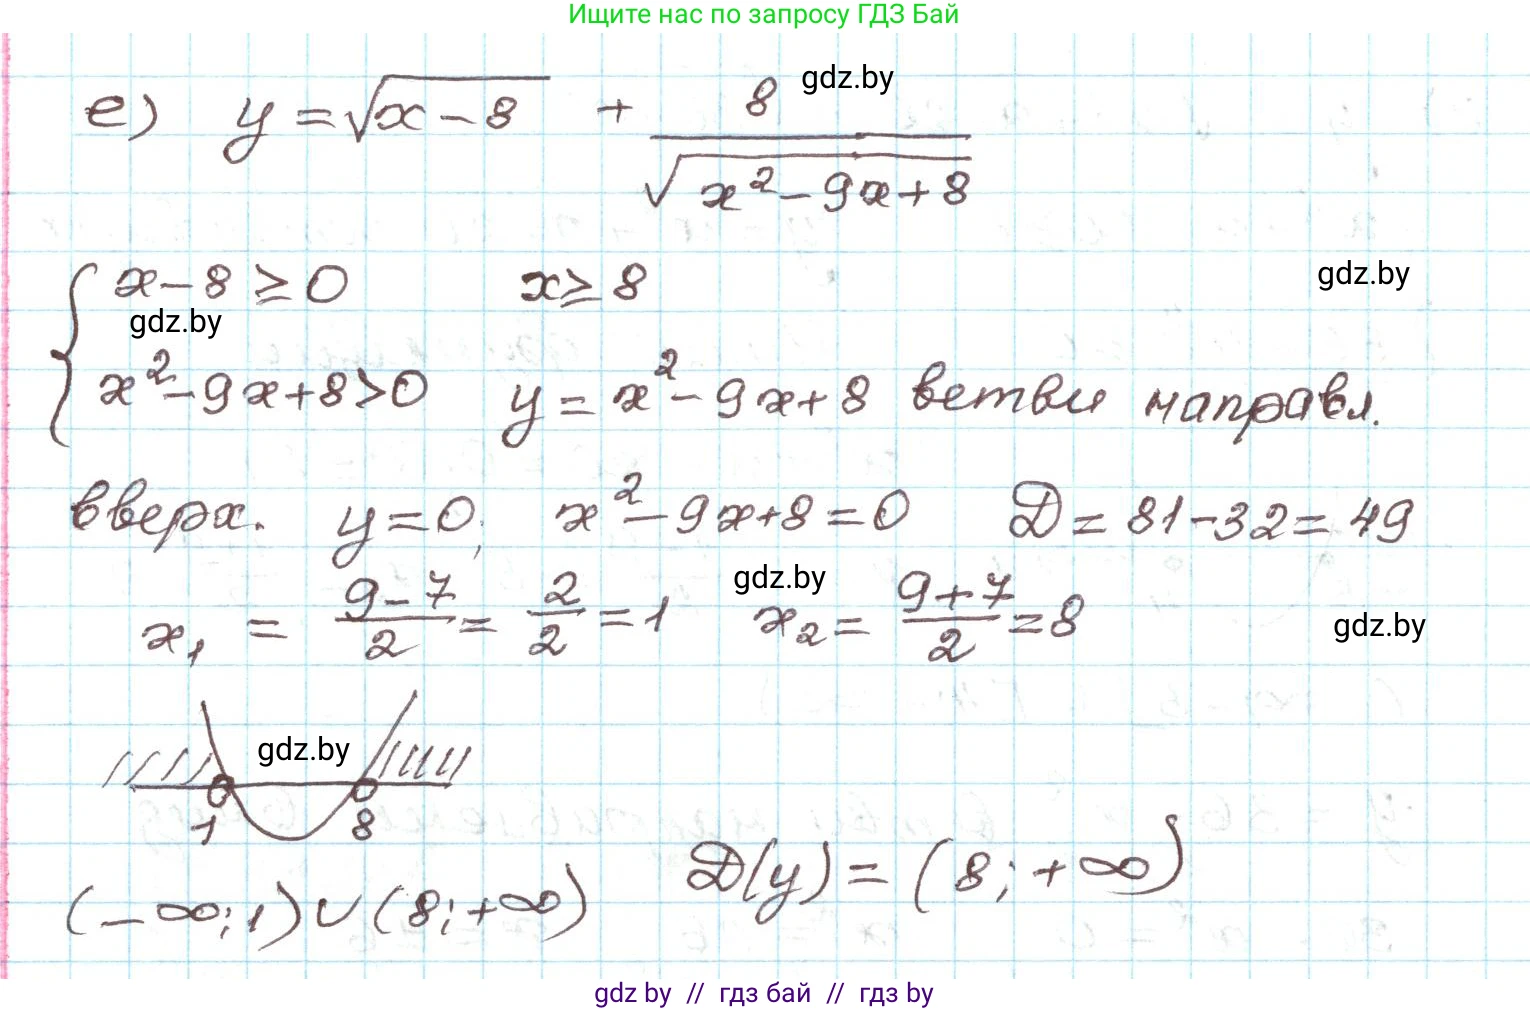 Ищите нас по запросу ГДЗ Бай
gdz.by
е) y = √(x-8) + 8/√(x²-9x+8)
{ x-8 ≥ 0 x ≥ 8
gdz.by
gdz.by
x²-9x+8>0 y = x²-9x+8 ветви направл.
вверх. y=0; x²-9x+8=0 D = 81-32 = 49
gdz.by
x₁ = (9-7)/2 = 2/2 = 1 x₂ = (9+7)/2 = 8
gdz.by
gdz.by
1 8
(-∞;1)∪(8;+∞) D(y) = (8;+∞)
gdz by // гдз бай // гдз by